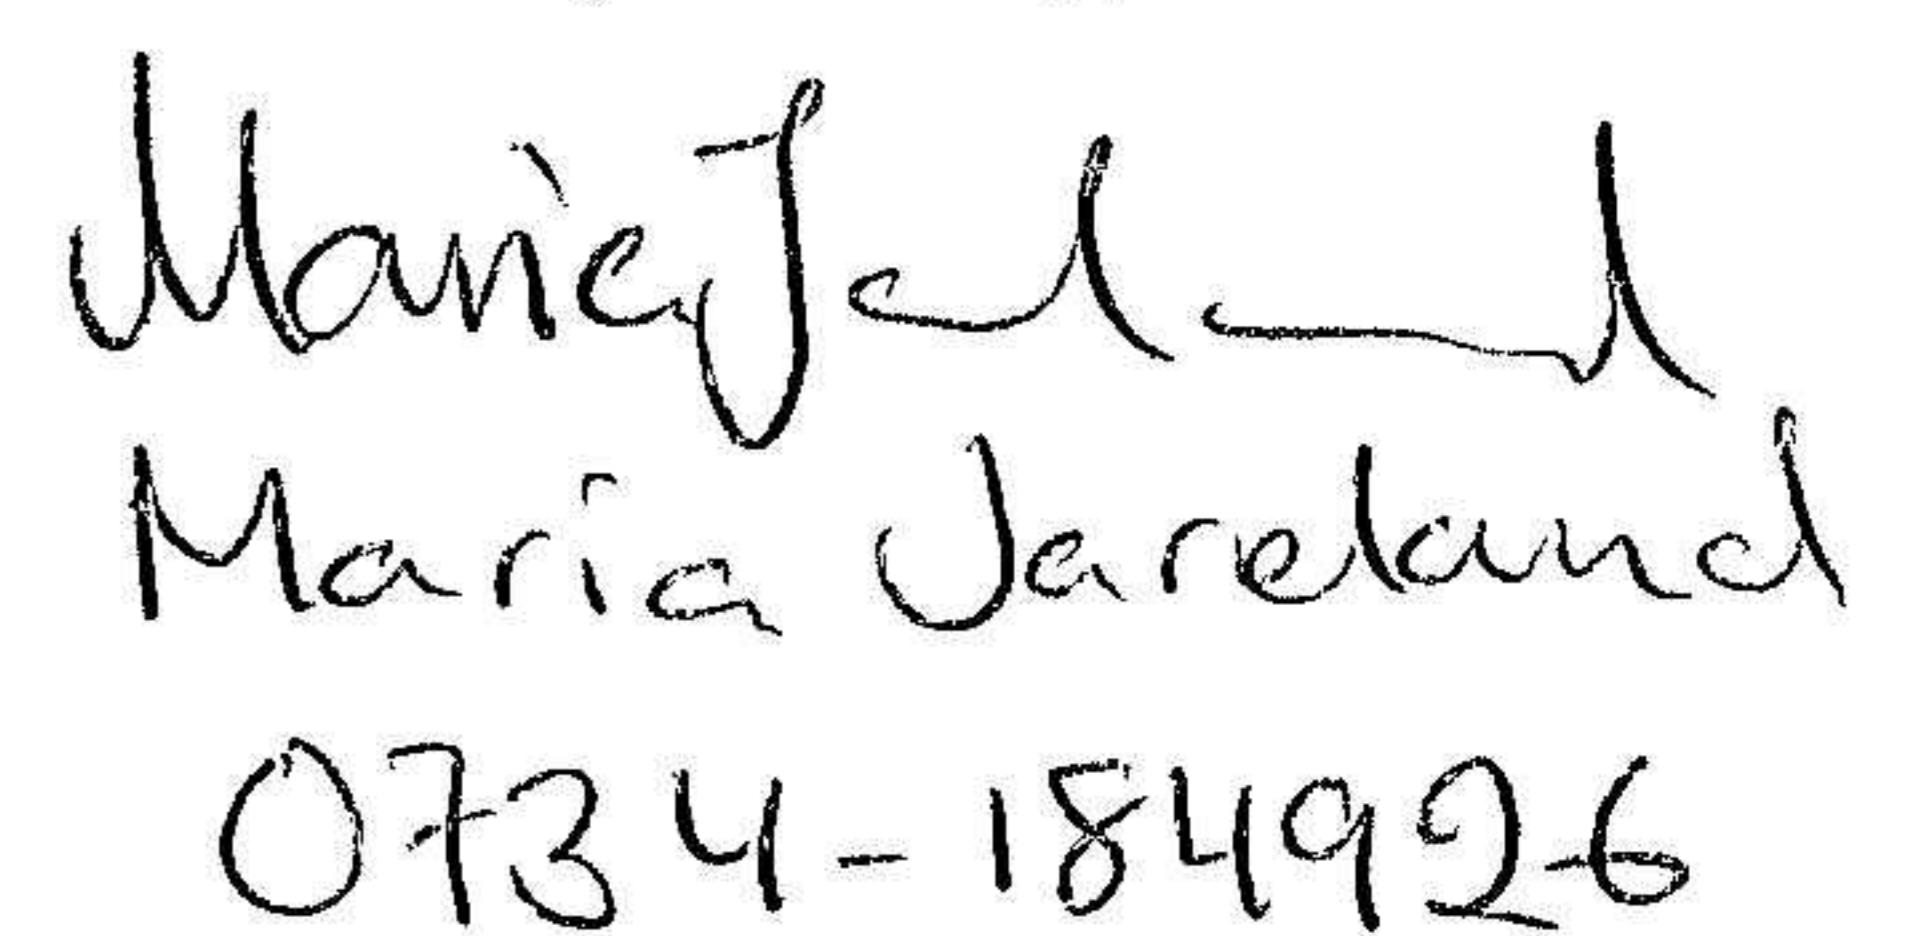 Maria Jareland
Maria Jareland
0734-184926